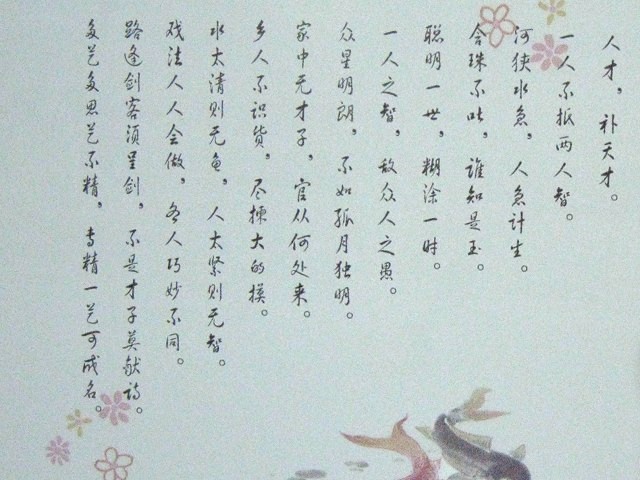 人才，补天才。
一人不抵两人智。
河狭水急，人急计生。
含珠不吐，谁知是玉。
聪明一世，糊涂一时。
一人之智，敌众人之愚。
众星明朗，不如孤月独明。
家中无才子，官从何处来。
乡人不识货，尽拣大的摸。
水太清则无鱼，人太紧则无智。
戏法人人会做，各人巧妙不同。
路逢剑客须呈剑，不是才子莫献诗。
多艺多思艺不精，专精一艺可成名。